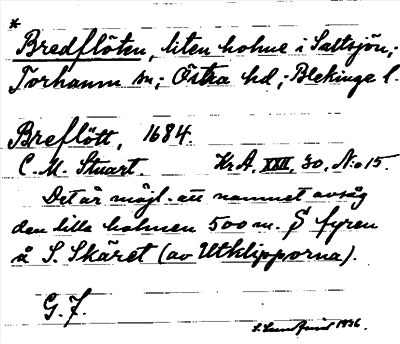 *
Bredflöten, liten holme i Saltsjön,;
Torhamn sn; Östra hd,; Blekinge l.
Breflött, 1684.
C. M. Stuart. Kr A, XXII, 30, No 15.
Det är möjl. att namnet avsåg
den lilla holmen 500 m. S fyren
å S. Skäret (av Utklipporna).
G. F.
1936